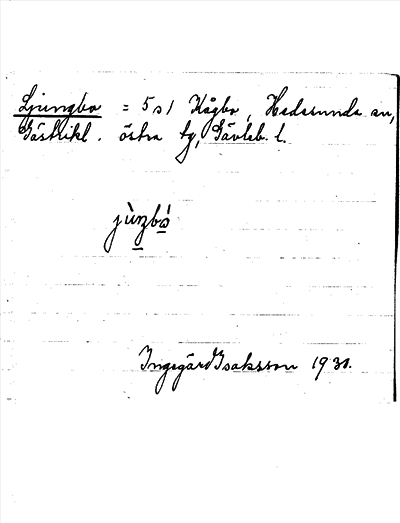 Ljungbo = 5:1 Kågbo, Hedesunda sn,
Gästrikl. östra tg, Gävleb. l.
jùŋbó
Ingegärd Isaksson 1930.